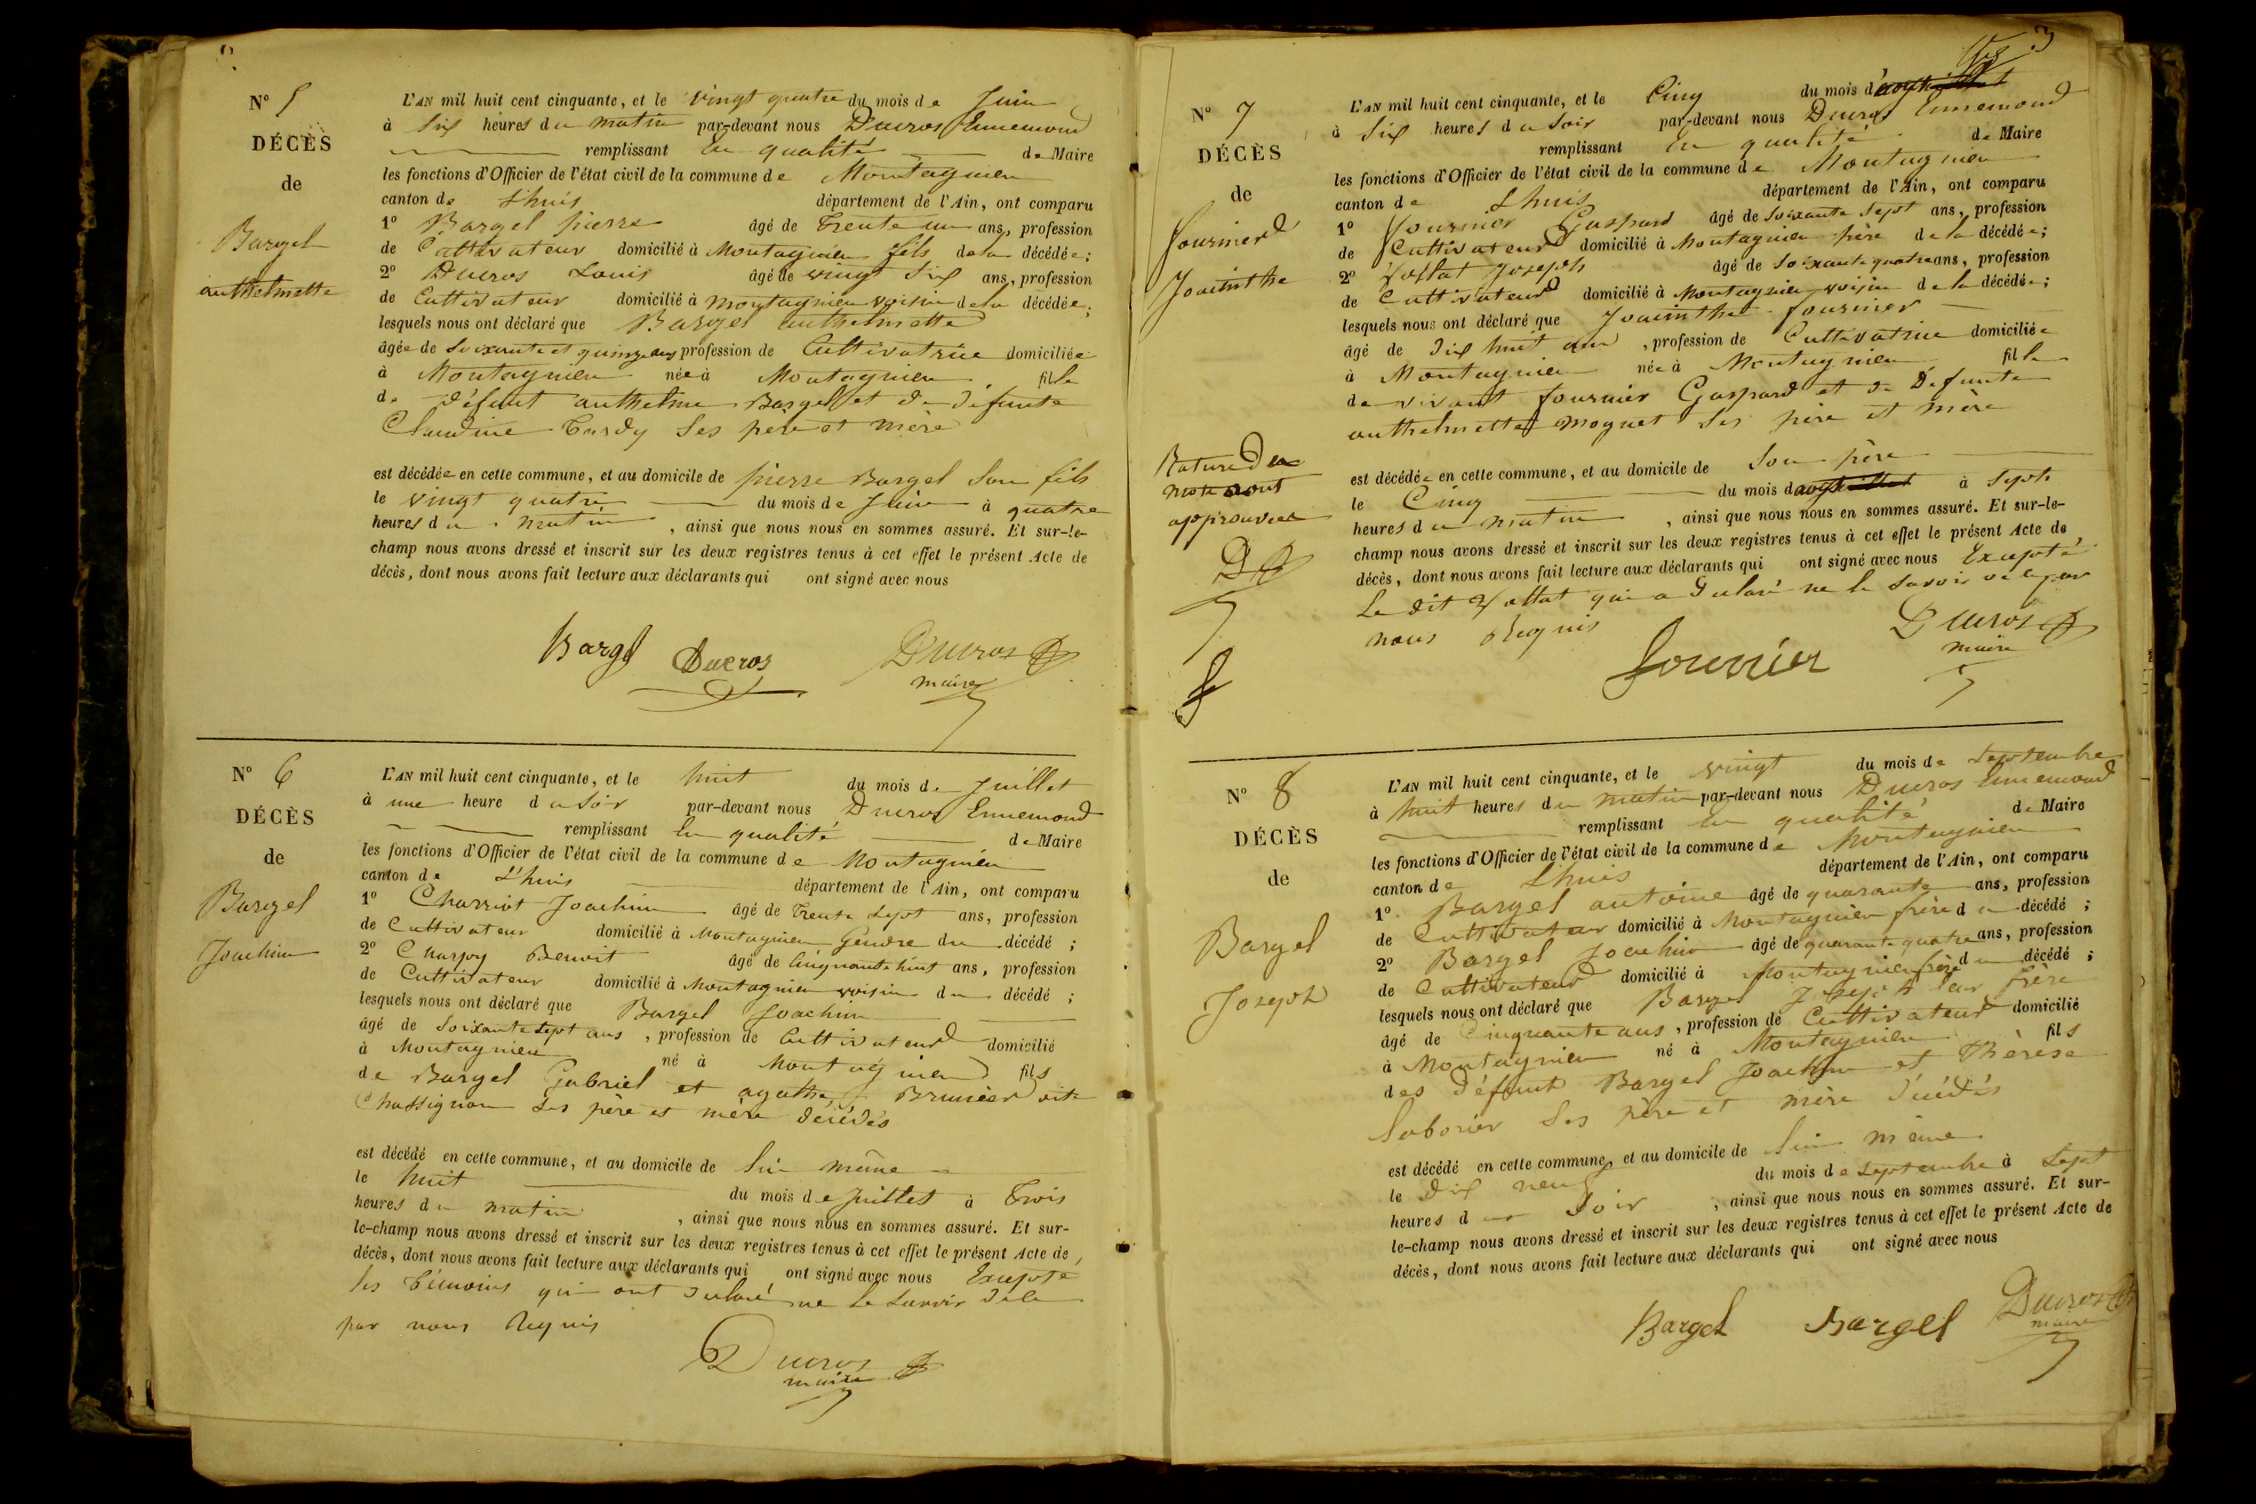 N° 5
DÉCÈS
de
Bargel
anthelmette
L'AN mil huit cent cinquante, et le vingt quatre du mois de Juin
à six heures du matin par-devant nous Ducros Ennemond
remplissant en qualité de Maire
les fonctions d'Officier de l'état civil de la commune de Montagnieu
canton de Lhuis département de l'Ain, ont comparu
1° Bargel pierre âgé de Trente un ans, profession
de Cultivateur domicilié à Montagnieu fils de la décédée;
2° Ducros Louis âgé de vingt six ans, profession
de Cultivateur domicilié à Montagnieu voisin de la décédée;
lesquels nous ont déclaré que Bargel anthelmette
âgée de Soixante et quinze ans profession de Cultivatrice domiciliée
à Montagnieu née à Montagnieu fille
de défunt anthelme Bargel et de défunte
Claudine Tardy ses père et mère
est décédée en cette commune, et au domicile de pierre Bargel son fils
le vingt quatre du mois de Juin à quatre
heures du matin, ainsi que nous nous en sommes assuré. Et sur-le-
champ nous avons dressé et inscrit sur les deux registres tenus à cet effet le présent Acte de
décès, dont nous avons fait lecture aux déclarants qui ont signé avec nous
Bargel Ducros Ducros
maire
N° 6
DÉCÈS
de
Bargel
Joachim
L'AN mil huit cent cinquante, et le huit du mois de Juillet
à une heure du soir par-devant nous Ducros Ennemond
remplissant en qualité de Maire
les fonctions d'Officier de l'état civil de la commune de Montagnieu
canton de L'huis département de l'Ain, ont comparu
1° Charriot Joachim âgé de Trente sept ans, profession
de Cultivateur domicilié à Montagnieu Gendre du décédé;
2° Charpy Benoit âgé de Cinquante huit ans, profession
de Cultivateur domicilié à Montagnieu voisin du décédé;
lesquels nous ont déclaré que Bargel Joachim
âgé de Soixante sept ans, profession de Cultivateur domicilié
à Montagnieu né à Montagnieu fils
de Bargel Gabriel et agathe Brunier dite
Chassignon ses père et mère décédés
est décédé en cette commune, et au domicile de lui même
le huit du mois de juillet à Trois
heures du matin, ainsi que nous nous en sommes assuré. Et sur-
le-champ nous avons dressé et inscrit sur les deux registres tenus à cet effet le présent Acte de
décès, dont nous avons fait lecture aux déclarants qui ont signé avec nous Excepté
les témoins qui ont declaré ne le savoir de ce
par nous Requis
Ducros
maire
3
N° 7
DÉCÈS
de
fournier
Jouinthe
Rature de
mots sont
approuvée
L'AN mil huit cent cinquante, et le Cinq du mois d'août
à Six heures du soir par-devant nous Ducros Ennemond
remplissant en qualité de Maire
les fonctions d'Officier de l'état civil de la commune de Montagnieu
canton de Lhuis département de l'Ain, ont comparu
1° fournier Gaspard âgé de Soixante sept ans, profession
de Cultivateur domicilié à Montagnieu père de la décédée;
2° Vollat Joseph âgé de Soixante quatre ans, profession
de Cultivateur domicilié à Montagnieu voisin de la décédée;
lesquels nous ont déclaré que Jouinthe fournier
âgé de dix huit ans, profession de Cultivatrice domiciliée
à Montagnieu née à Montagnieu fille
de vivant fournier Gaspard et de Défunte
anthelmette moquet ses père et mère
est décédée en cette commune, et au domicile de Son père
le Cinq du mois d'août à sept
heures du matin, ainsi que nous nous en sommes assuré. Et sur-le-
champ nous avons dressé et inscrit sur les deux registres tenus à cet effet le présent Acte de
décès, dont nous avons fait lecture aux déclarants qui ont signé avec nous Excepté
Le dit Vollat qui a declaré ne le savoir de ce par
nous Requis
fournier Ducros
maire
N° 8
DÉCÈS
de
Bargel
Joseph
L'AN mil huit cent cinquante, et le vingt du mois de septembre
à huit heures du matin par-devant nous Ducros Ennemond
remplissant en qualité de Maire
les fonctions d'Officier de l'état civil de la commune de Montagnieu
canton de Lhuis département de l'Ain, ont comparu
1° Bargel antoine âgé de quarante ans, profession
de Cultivateur domicilié à Montagnieu frère du décédé;
2° Bargel Joachim âgé de quarante quatre ans, profession
de Cultivateur domicilié à Montagnieu frère du décédé;
lesquels nous ont déclaré que Bargel Joseph leur frère
âgé de Cinquante ans, profession de Cultivateur domicilié
à Montagnieu né à Montagnieu fils
des défunt Bargel Joachim et Thérèse
Saborier ses père et mère décédés
est décédé en cette commune, et au domicile de lui même
le Dix neuf du mois de septembre à Sept
heures du soir, ainsi que nous nous en sommes assuré. Et sur-
le-champ nous avons dressé et inscrit sur les deux registres tenus à cet effet le présent Acte de
décès, dont nous avons fait lecture aux déclarants qui ont signé avec nous
Bargel Bargel Ducros
maire